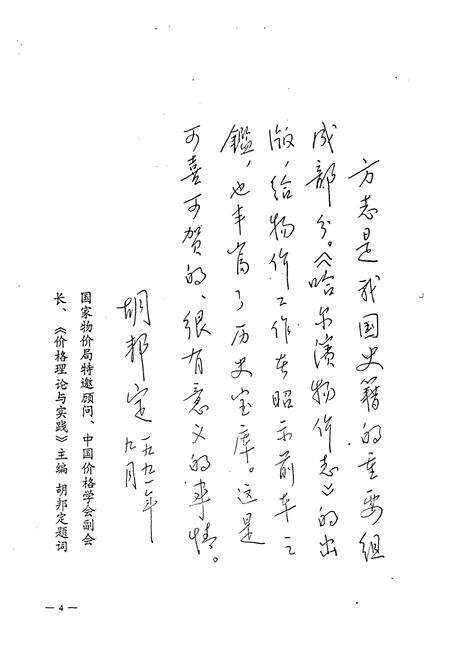 方志是我国史籍的重要组
成部分。《哈尔滨物价志》的出
版，给物价工作在昭示前车之
鑑，也丰富了历史宝库。这是
可喜可贺的、很有意义的事情。
胡邦定 一九九一年
九月
国家物价局特邀顾问、中国价格学会副会
长、《价格理论与实践》主编 胡邦定题词
— 4 —